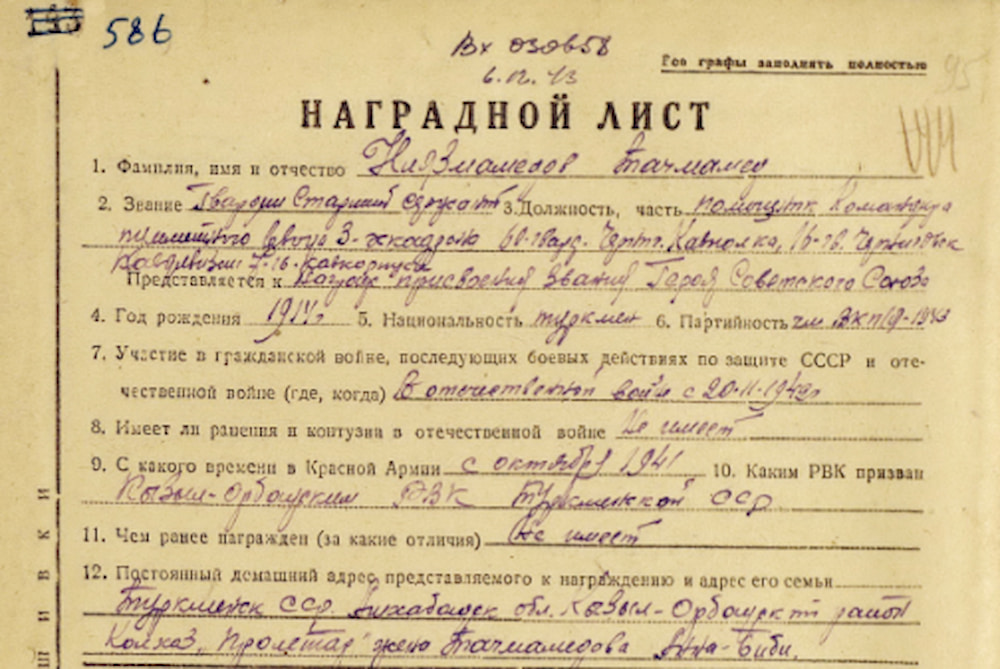 586
Вх 030658
6.12.43
Все графы заполнять полностью
95
НАГРАДНОЙ ЛИСТ
1. Фамилия, имя и отчество Ниязмамедов Тачмамед
2. Звание Гвардии Старший сержант 3. Должность, часть помощник Командира
пулеметного взвода 3-эскадрона 60-гвард. Черн. Кавполка, 16-гв. Черниговск
Кавдивизии 7-гв. кавкорпуса
Представляется к награде присвоения звания Героя Советского Союза
4. Год рождения 1914г 5. Национальность туркмен 6. Партийность чл. ВКП(б)-1943
7. Участие в гражданской войне, последующих боевых действиях по защите СССР и оте-
чественной войне (где, когда) В отечественной войне с 20-11-1942г
8. Имеет ли ранения и контузии в отечественной войне Не имеет
9. С какого времени в Красной Армии с октября 1941 10. Каким РВК призван
Кызыл-Орбатским РВК Туркменской ССР
11. Чем ранее награжден (за какие отличия) Не имеет
12. Постоянный домашний адрес представляемого к награждению и адрес его семьи
Туркменск ССР. Ашхабадск обл. Кызыл-Орбатск район
Колхоз „Пролетар" жена Тачмамедова Анна-Биби.